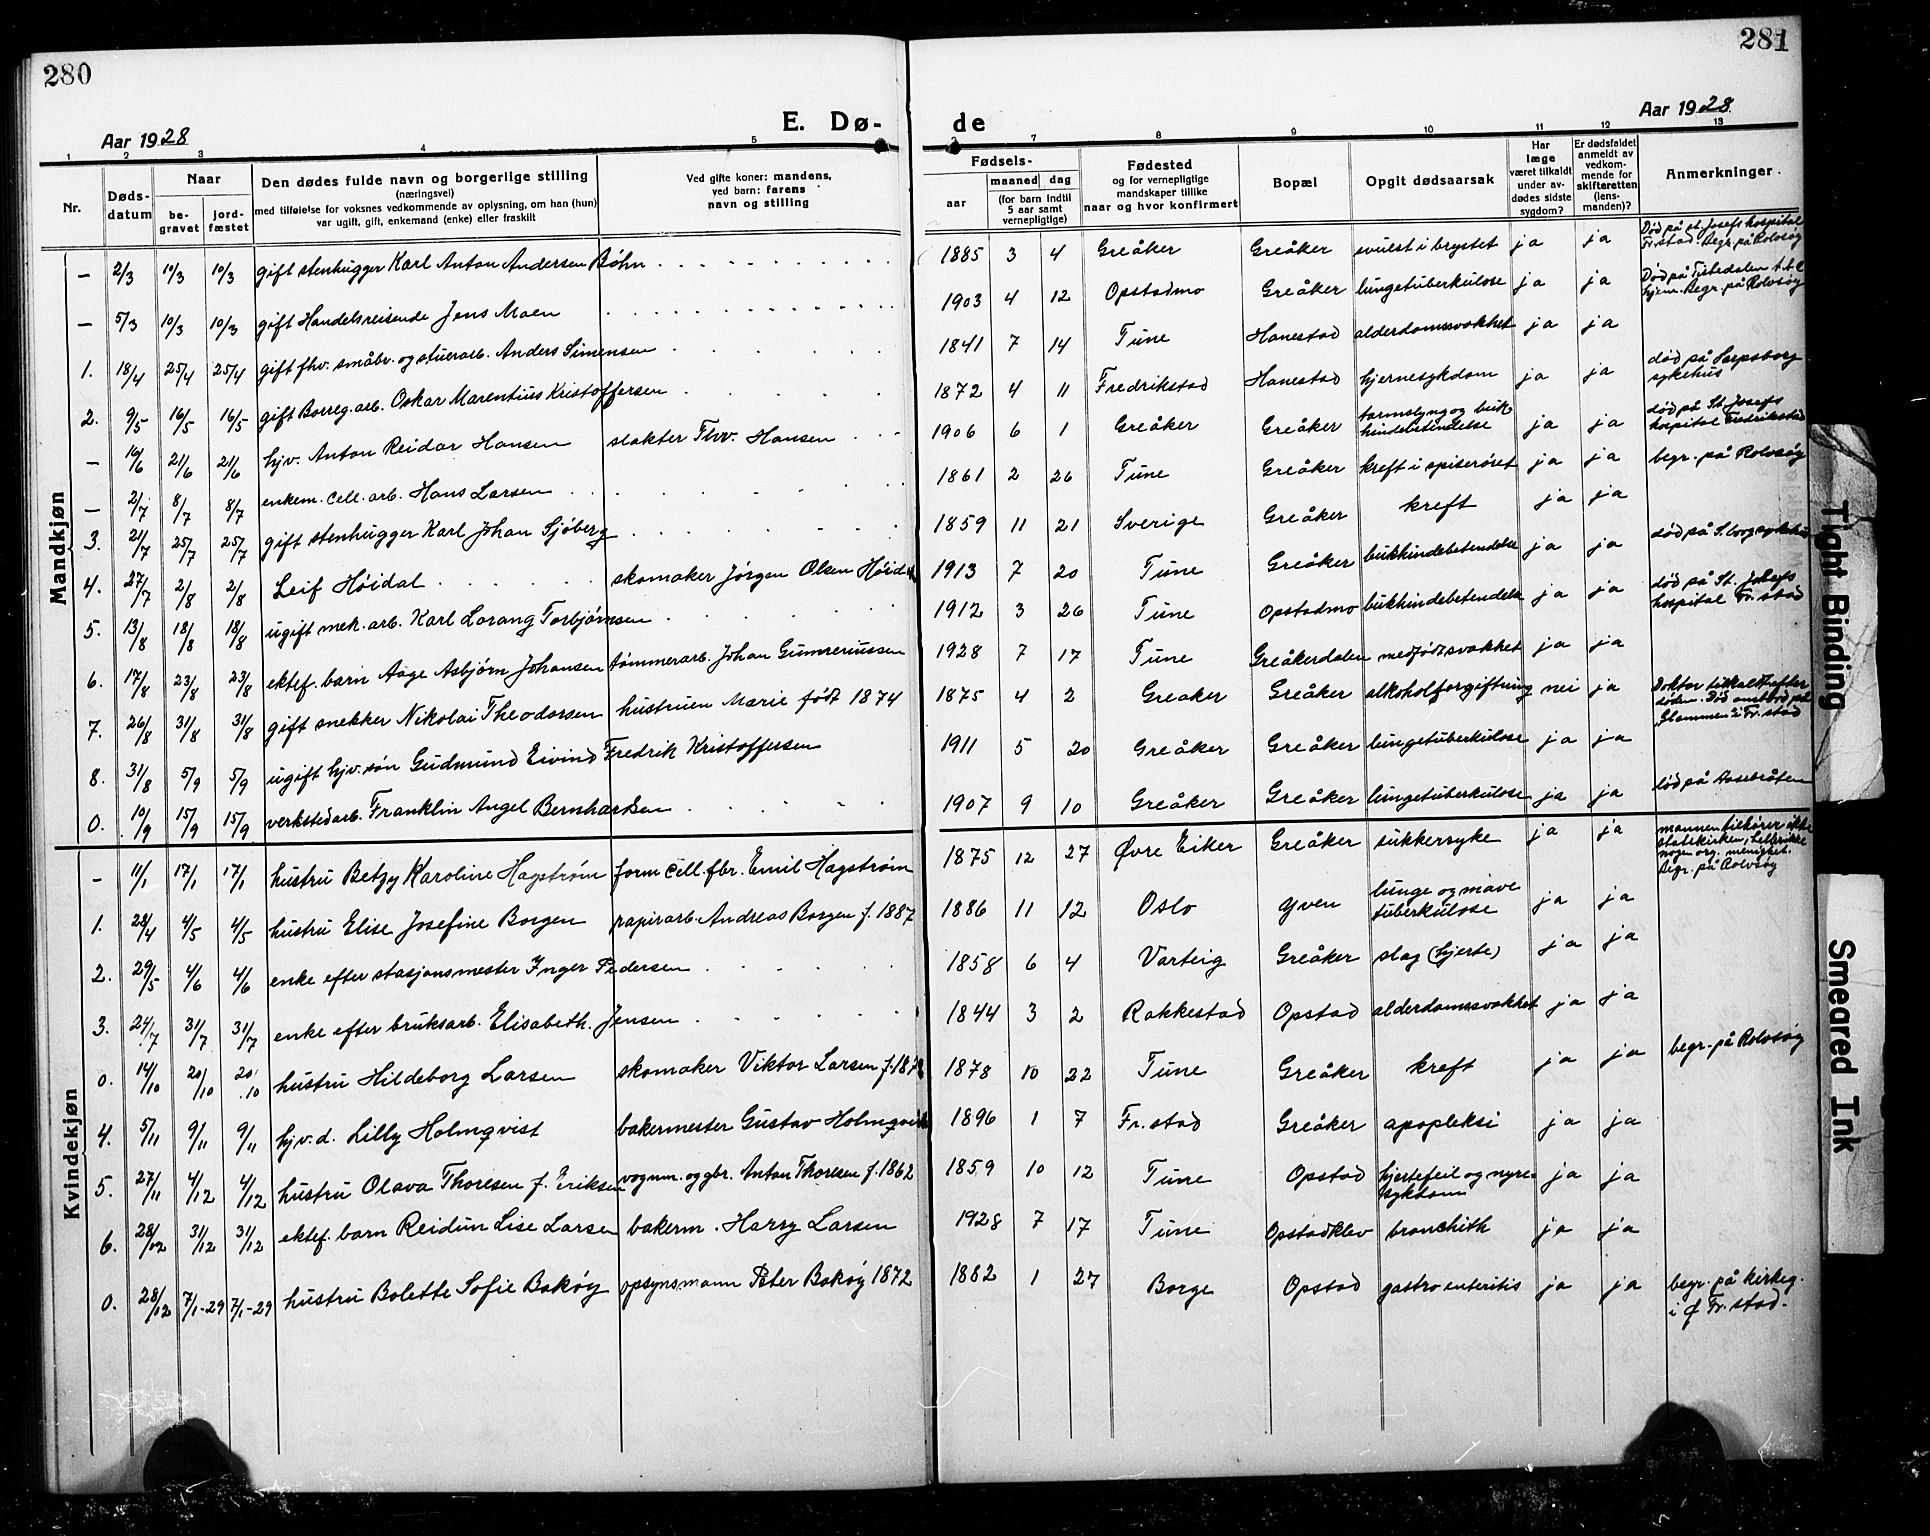 280
281
Aar 1928
E. Dø-
de
Aar 1928
1 2 3 4 5 7 8 9 10 11 12 13
Nr.
Døds-datum
Naar
be-gravet
jord-fæstet
Den dødes fulde navn og borgerlige stilling
(næringsvei)
med tilføielse for voksnes vedkommende av oplysning, om han (hun)
var ugift, gift, enkemand (enke) eller fraskilt
Ved gifte koner: mandens,
ved barn: farens
navn og stilling
Fødsels-
aar
maaned
dag
(for barn indtil
5 aar samt
vernepligtige)
Fødested
og for vernepligtige
mandskaper tillike
naar og hvor konfirmert
Bopæl
Opgit dødsaarsak
Har
læge
været tilkaldt
under av-
dødes sidste
sygdom?
Er dødsfaldet
anmeldt av
vedkom-
mende for
skifteretten
(lens-
manden)?
Anmerkninger.
Mandkjøn
— 2/3 10/3 10/3 gift stenhugger Karl Anton Andersen Bøhn 1885 3 4 Greåker Greåker svulst i brystet ja ja Død på st. Josefs hospital Fr.stad. Begr. på Rolvsøy
— 5/3 10/3 10/3 gift Handelsreisende Jens Moen 1903 4 12 Opstadmo Greåker lungetuberkulose ja ja Død på Tistedalen t.b.c hjem. Begr. på Rolvsøy
1. 18/4 25/4 25/4 gift fhv. småbr. og stuerarb. Anders Simensen 1841 7 14 Tune Hanestad alderdomssvakhet ja ja
2. 9/5 16/5 16/5 gift Borreg.arb. Oskar Marentius Kristoffersen 1872 4 11 Fredrikstad Hanestad hjernesykdom ja ja død på Sarpsborg sykehus
— 16/6 21/6 21/6 hjv. Anton Reidar Hansen slakter Thv. Hansen 1906 6 1 Greåker Greåker tarmslyng og buk-hindebetendelse ja ja død på St. Josefs hospital Fredrikstad
— 2/7 8/7 8/7 enkem. cell. arb. Hans Larsen 1861 2 26 Tune Greåker kreft i spiserøret ja ja begr. på Rolvsøy
3. 21/7 25/7 25/7 gift stenhugger Karl Johan Sjøberg 1859 11 21 Sverige Greåker kreft ja ja
4. 27/7 2/8 2/8 Leif Høidal skomaker Jørgen Olsen Høidal 1913 7 20 Tune Greåker bukhindebetendelse ja ja død på S.borg sykehus
5. 13/8 18/8 18/8 ugift mek. arb. Karl Lorang Torbjørnsen 1912 3 26 Tune Opstadmo bukhindebetendelse ja ja død på St. Josefs hospital Fr.stad
6. 17/8 23/8 23/8 ektef. barn Aage Asbjørn Johansen tømmerarb. Johan Gunneriussen 1928 7 17 Tune Greåkerdalen medfødt svakhet ja ja
7. 26/8 31/8 31/8 gift snekker Nikolai Theodorsen hustruen Marie født 1874 1875 4 2 Greaker Greåker alkoholforgiftning nei ja Doktor tilkaldt efter døden. Død ombord på "Glommen" i Fr.stad
8. 31/8 5/9 5/9 ugift hjv. søn Gudmund Eivind Fredrik Kristoffersen 1911 5 20 Greåker Greåker lungetuberkulose ja ja
0. 10/9 15/9 15/9 verkstedarb. Franklin Angel Bernhardsen 1907 9 10 Greåker Greåker lungetuberkulose ja ja død på Aasebråten
Kvindekjøn
— 11/1 17/1 17/1 hustru Betzy Karoline Hagstrøm form cell. fbr. Emil Hagstrøm 1875 12 27 Øvre Eiker Greåker sukkersyke ja ja mannen tilhører ikke statskirken, heller ikke nogen org. menighet. Begr. på Rolvsøy
1. 28/4 4/5 4/5 hustru Elise Josefine Borgen papirarb. Andreas Borgen f. 1887 1886 11 12 Oslo Yven lunge og mave tuberkulose ja ja
2. 29/5 4/6 4/6 enke efter stasjonsmester Inger Pedersen 1858 6 4 Varteig Greåker slag (hjerte) ja ja
3. 24/7 31/7 31/7 enke efter bruksarb. Elisabeth. Jensen 1844 3 2 Rakkestad Opstad alderdomssvakhet ja ja
0. 14/10 20/10 20/10 hustru Hildeborg Larsen skomaker Viktor Larsen 1878 10 22 Tune Greåker kreft ja ja begr. på Rolvsøy
4. 5/11 9/11 9/11 hjv. d. Lilly Holmqvist bakermester Gustav Holmqvist 1896 1 7 Fr.stad Greåker apopleksi ja ja
5. 27/11 4/12 4/12 hustru Olava Thoresen f. Eriksen vognm. og gbr. Anton Thoresen f. 1862 1859 10 12 Tune Opstad hjertefeil og nyre-sykdom ja ja
6. 28/12 31/12 31/12 ektef. barn Reidun Lise Larsen bakerm. Harry Larsen 1928 7 17 Tune Opstadklev bronchith ja ja
0. 28/12 7/1-29 7/1-29 hustru Bolette Sofie Bakøy opsynsmann Peter Bakøy 1872 1882 1 27 Borge Opstad gastroenteritis ja ja begr. på kirkeg. i Ø Fr.stad.
Tight Binding
Smeared Ink